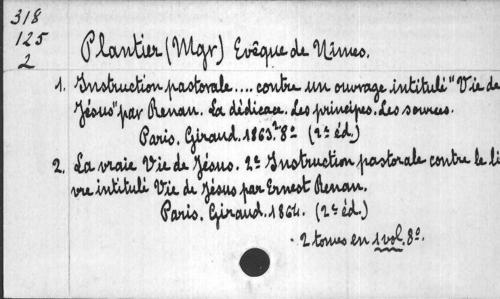 318
125
2
Plantier (Mgr) Evêque de Nîmes.
1. Instruction pastorale.... contre un ouvrage intitulé "Vie de
Jésus" par Renan. La dédicace. Les principes. Les sources.
Paris. Giraud. 1863. 8º (2e éd.)
2. La vraie Vie de Jésus. 2e Instruction pastorale contre le li
vre intitulé Vie de Jésus par Ernest Renan.
Paris. Giraud. 1864. (2e éd.)
2 tomes en 1 vol. 8º.